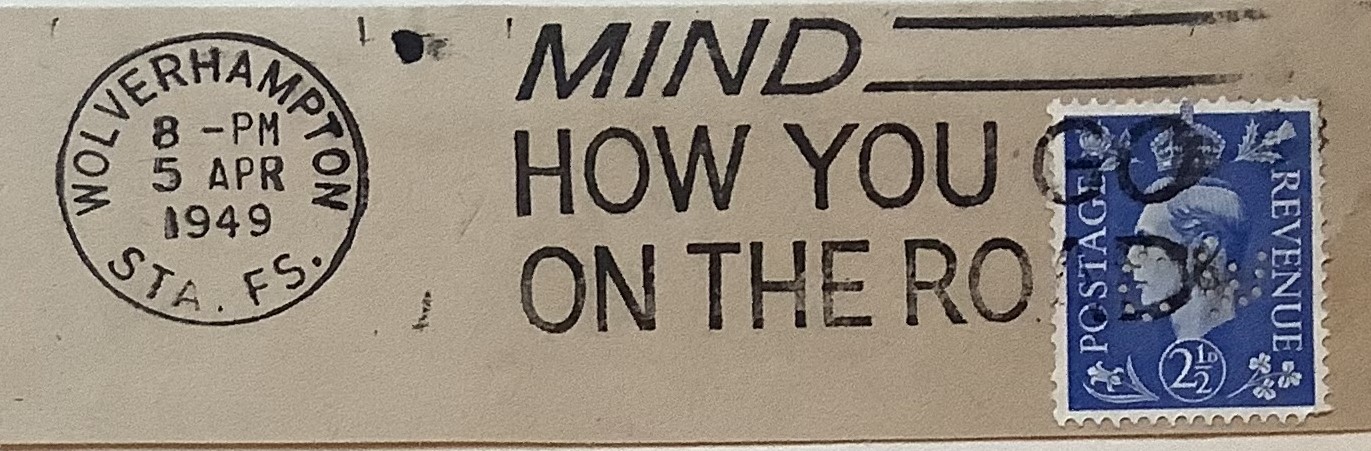 WOLVERHAMPTON
8 -PM
5 APR
1949
STA. FS.
MIND
HOW YOU GO
ON THE ROAD
POSTAGE
REVENUE
2½D